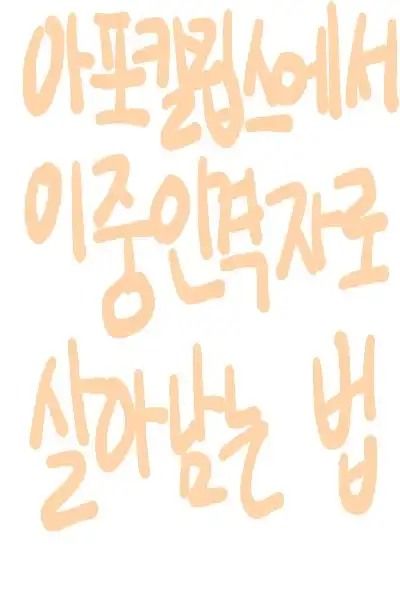 아포칼립스에서
이중인격자로
살아남는 법